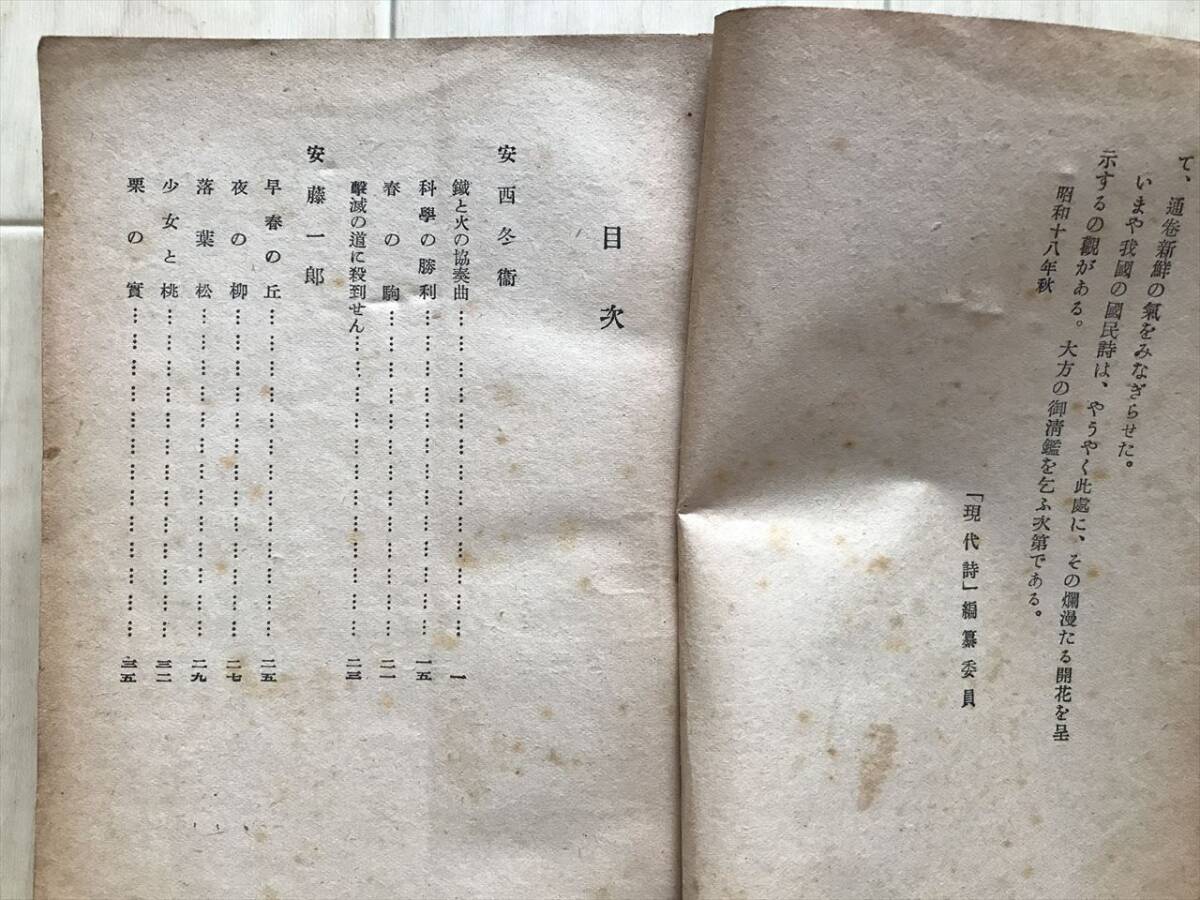 て、通卷新鮮の氣をみなぎらせた。
いまや我國の國民詩は、やうやく此處に、その爛漫たる開花を呈
示するの觀がある。大方の御淸鑑を乞ふ次第である。
昭和十八年秋
「現代詩」編纂委員
目次
安西冬衞
鐵と火の協奏曲……………………………一
科學の勝利……………………………一五
春の駒……………………………二一
擊滅の道に殺到せん……………………………二三
安藤一郞
早春の丘……………………………二五
夜の柳……………………………二七
落葉松……………………………二九
少女と桃……………………………三二
栗の實……………………………三五